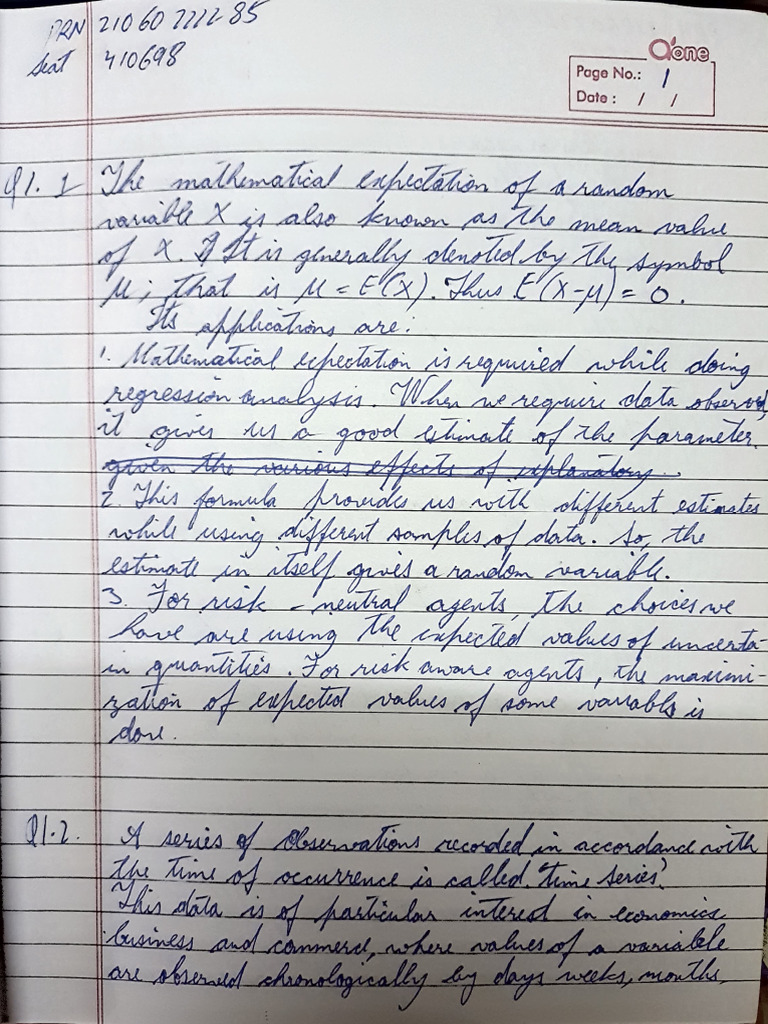 PRN 21060 2222 85
Seat 410698
a'one
Page No.: 1
Date : / /
Q1. 1 The mathematical expectation of a random
variable X is also known as the mean value
of X. It is generally denoted by the symbol
μ; that is μ = E(X). Thus E(X-μ) = 0.
Its applications are:
1. Mathematical expectation is required while doing
regression analysis. When we require data observed,
it gives us a good estimate of the parameter.
given the various effects of explanatory
2. This formula provides us with different estimates
while using different samples of data. So, the
estimate in itself gives a random variable.
3. For risk - neutral agents, the choices we
have are using the expected values of uncerta-
in quantities. For risk aware agents, the maximi-
zation of expected values of some variable is
done.
Q1.2. A series of observations recorded in accordance with
the time of occurrence is called 'time series'.
This data is of particular interest in economics,
business and commerce, where values of a variable
are observed chronologically by days weeks, months,